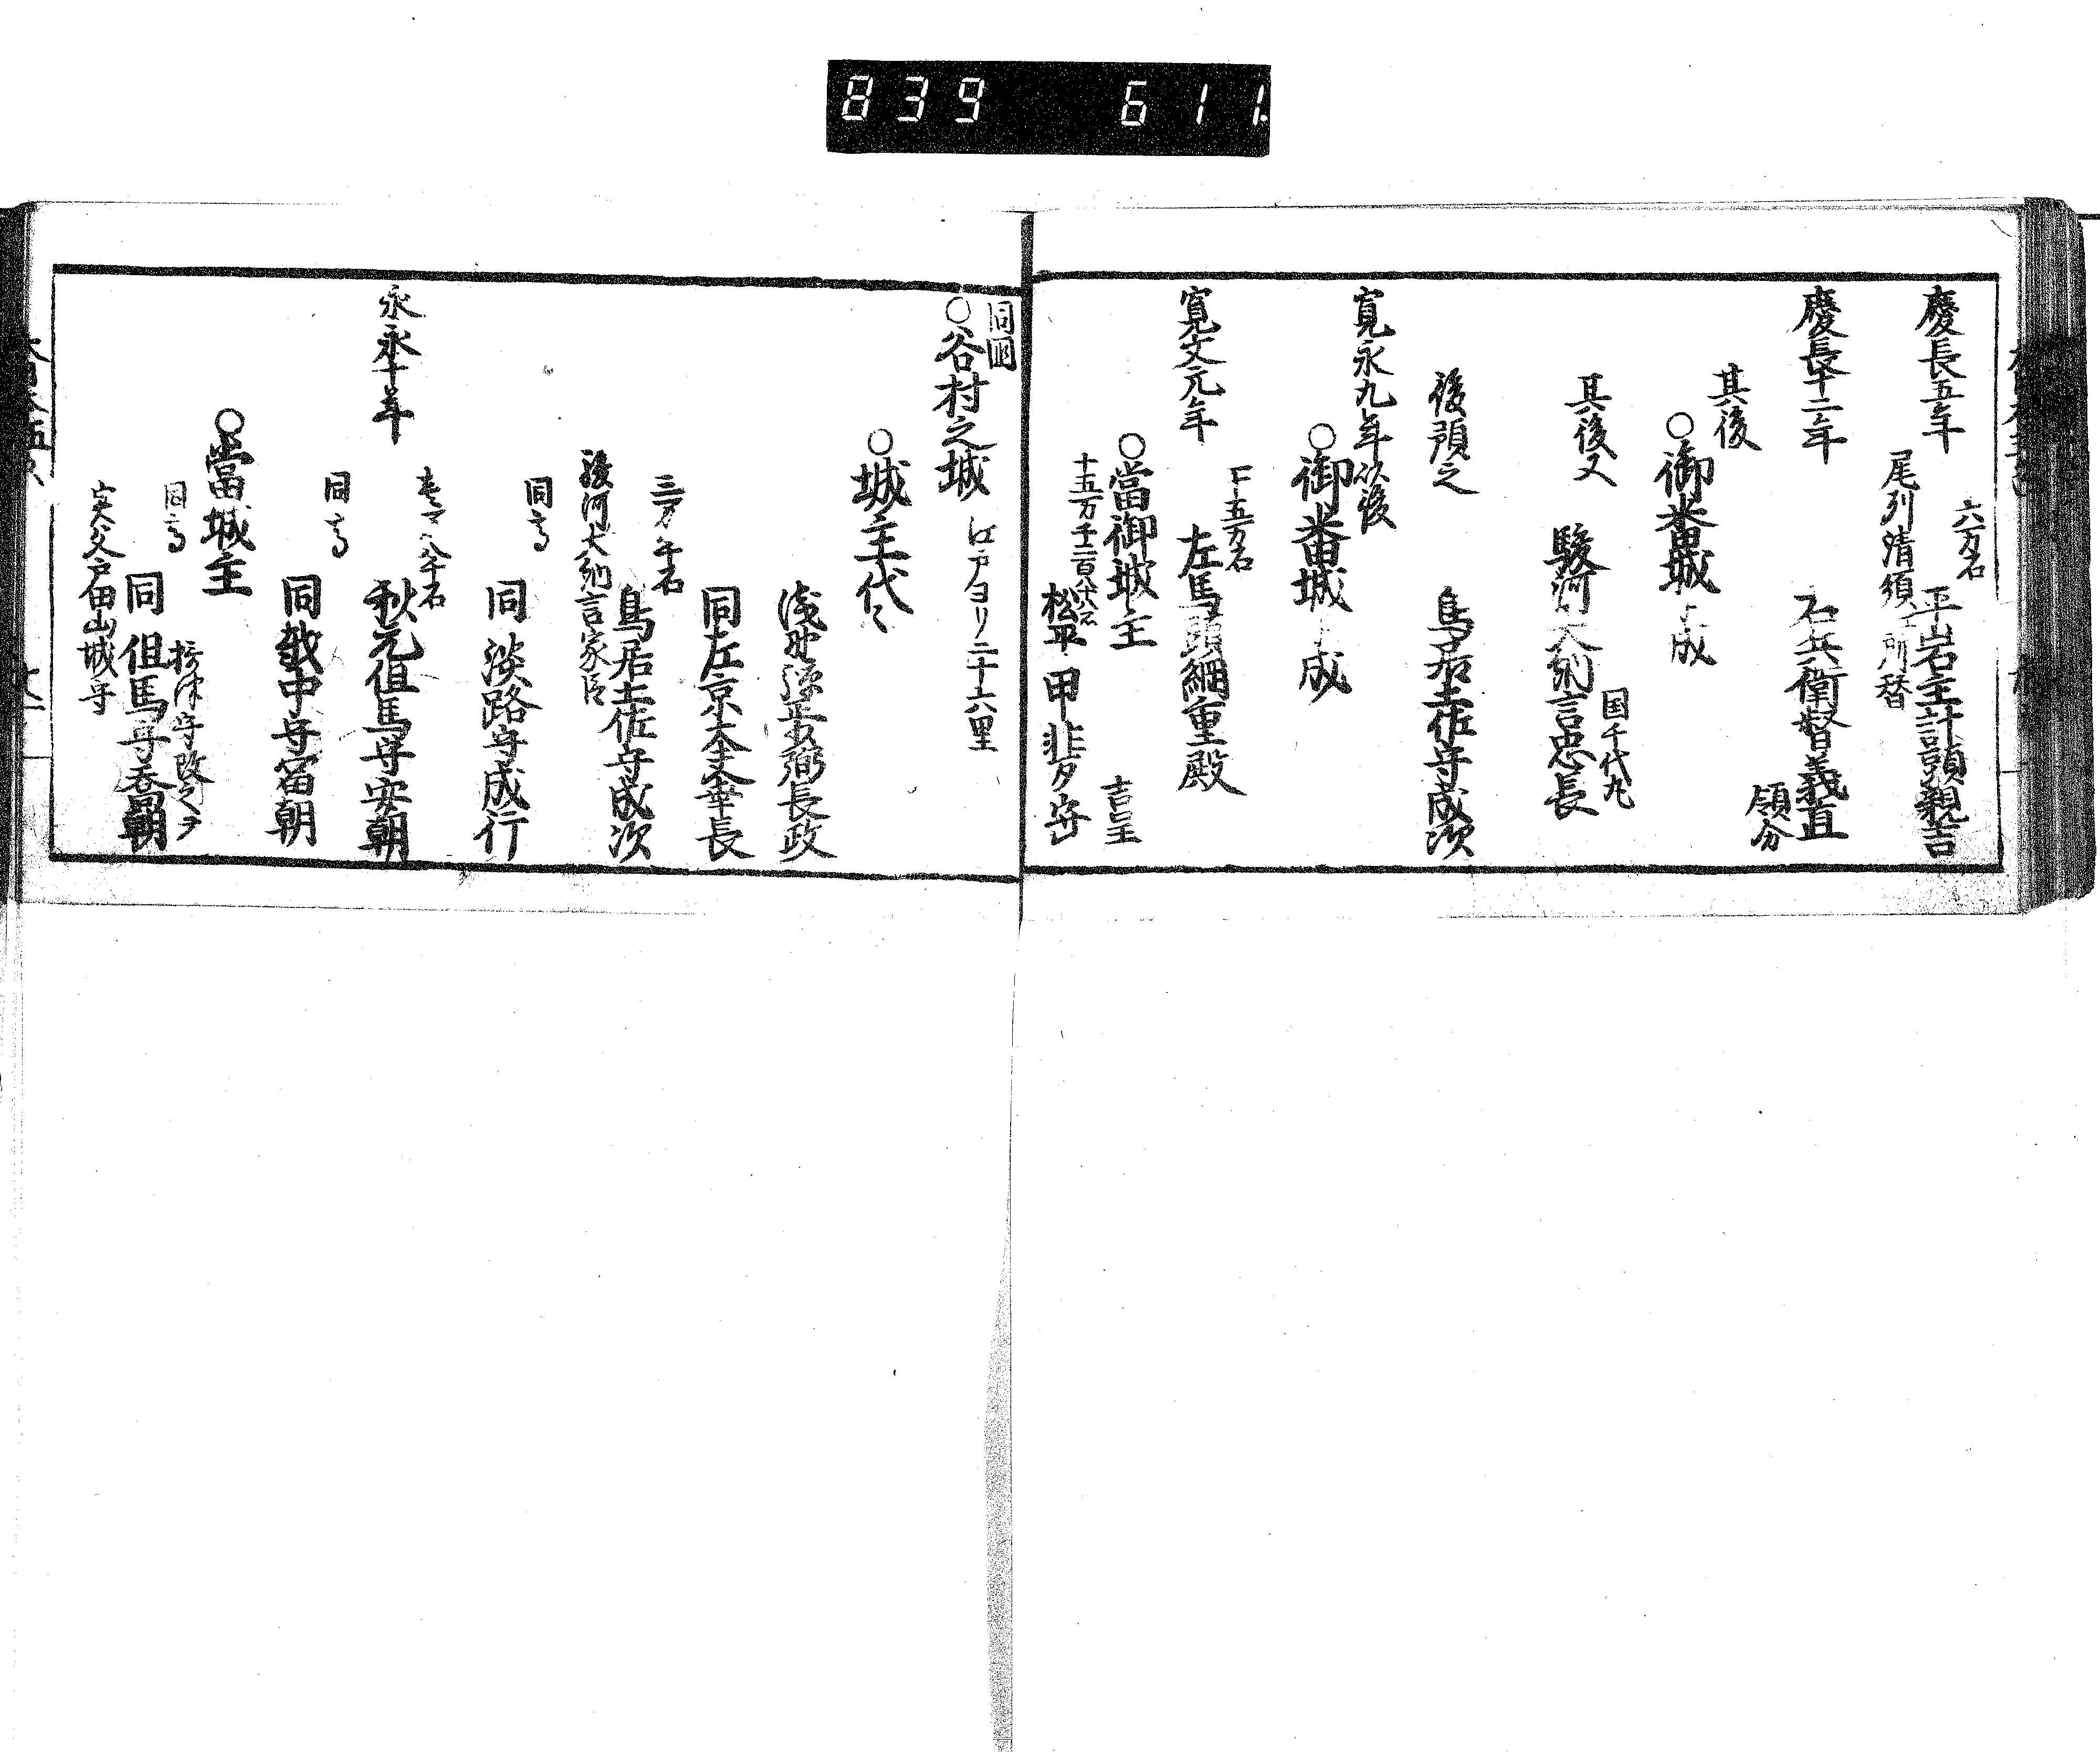 839 611
慶長五年
六万石
平岩主計頭親吉
尾州清須エ所替
慶長十二年
右兵衛督義直
領分
其後
○御番城ニ成
其後又
国千代丸
駿河大納言忠長
後預之
鳥居土佐守成次
寛永九年以後
○御番城ニ成
寛文元年
十五万石
左馬頭綱重殿
○當御城主
吉里
松平甲斐守
同国
○谷村之城
江戸ヨリ二十六里
○城主代々
浅野弾正少弼長政
同左京大夫幸長
鳥居土佐守成次
駿河大納言家臣
同高
同淡路守成行
永十年
壱万八千石
秋元但馬守安朝
同高
同越中守冨朝
○當城主
同高
摂津守改之ヲ
同但馬守喬朝
実父戸田山城守